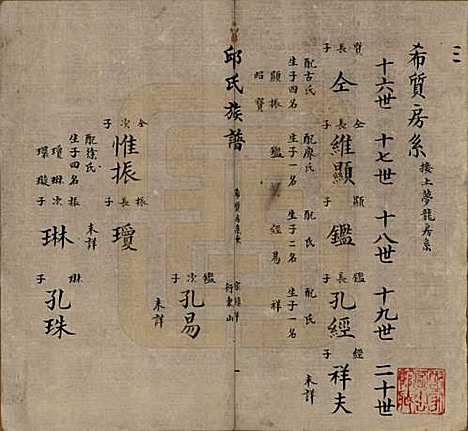 希質房系 接上夢龍房系
十六世 十七世 十八世 十九世 二十世
質長子 仝 配古氏 生子四名 顯 振 昭 賢
仝長子 維顯 配廖氏 生子一名 鑑
顯長子 鑑 配氏 生子二名 經 易
鑑長子 孔經 配氏 生子一名 祥
經子 祥夫 未詳
邱氏族譜
鑑次子 孔易 未詳
仝次子 惟振 配徐氏 生子四名 瓊 琳 璞 璇
振長子 瓊 未詳
振次子 琳
琳子 孔珠